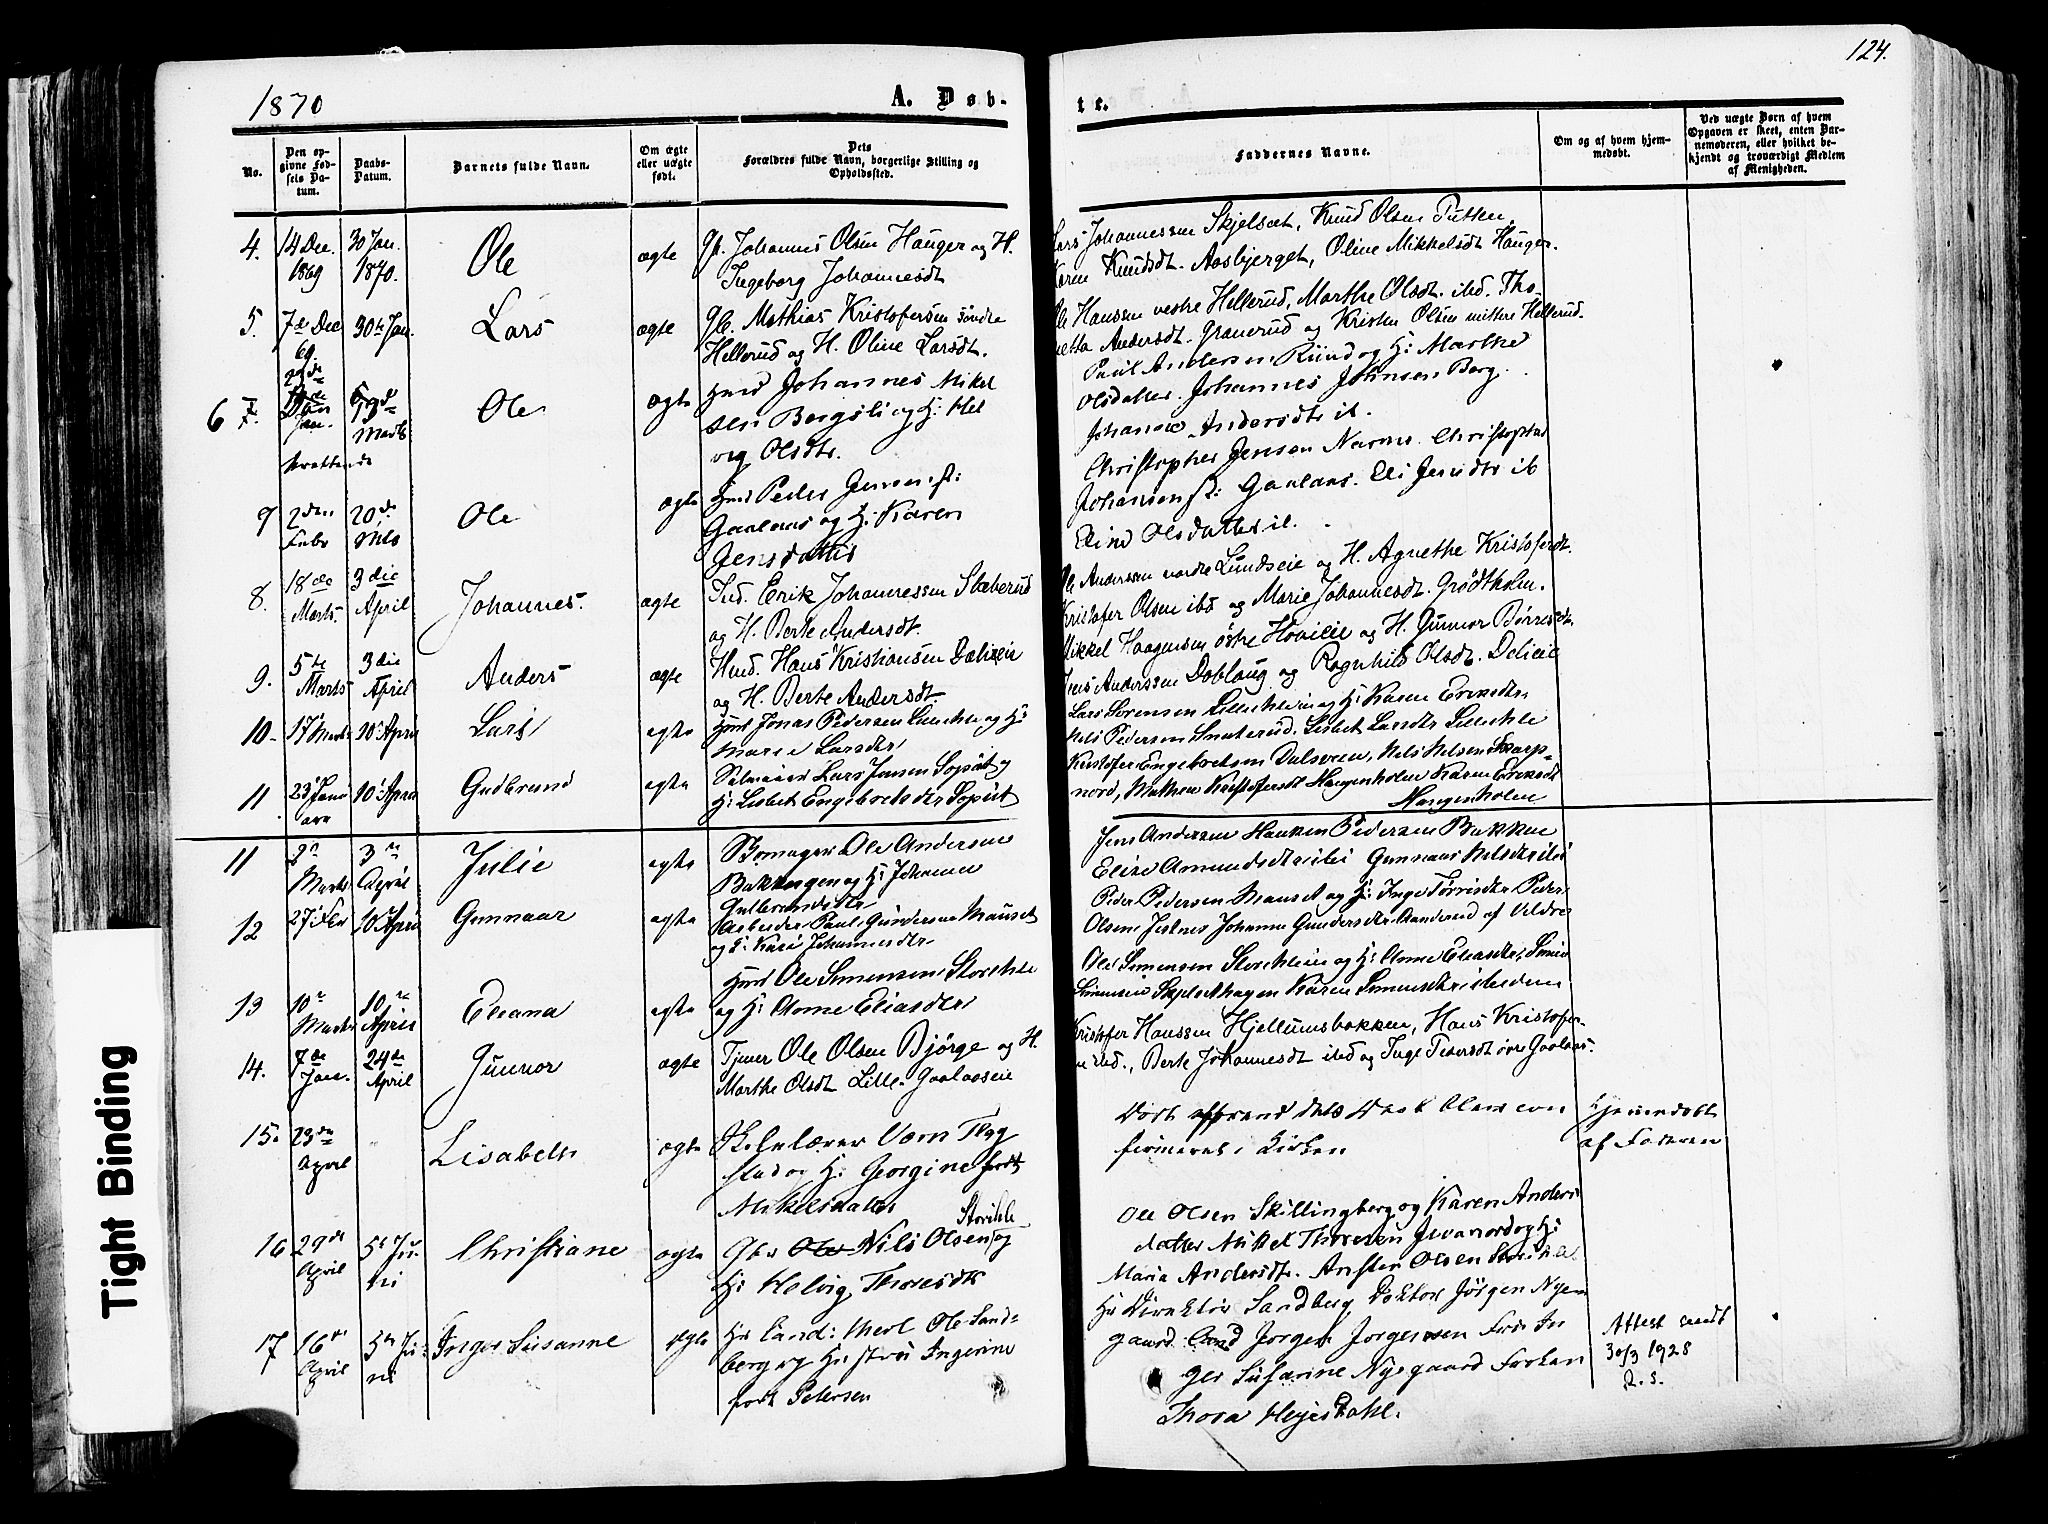 124.
1870
A. Døb-
te.
No.
Den op-
givne Fød-
sels Da-
tum.
Daabs-
Datum.
Barnets fulde Navn.
Om ægte
eller uægte
født.
Dets
Forældres fulde Navn, borgerlige Stilling og
Opholdssted.
Faddernes Navne.
Om og af hvem hjem-
medøbt.
Ved uægte Børn af hvem
Opgaven er skeet, enten Bar-
nemoderen, eller hvilket be-
kjendt og troværdigt Medlem
af Menigheden.
4.
14 Dec.
1869
30 Jan.
1870.
Ole
ægte
Gb. Johannes Olsen Hauger og H.
Ingeborg Johannesdt
Lars Johannessen Skjelset, Knud Olsen Putten,
Karen Knudsdt. Aasbjerget, Oline Mikkelsdt Hauger.
5.
7de Dec
69.
30te Jan.
Lars
ægte
Gb. Mathias Kristofersen søndre
Hellerud og H. Oline Larsdt.
Ole Hanssen vestre Hellerud, Marthe Olsdt. ibd. Tho-
netta Andersdt. Granerud og Kristen Olsen mittere Hellerud.
6
Jan.
Marts
Ole
ægte
Hmd Johannes Mikel
sen Borgsli og H: Hel
vig Olsdtr.
Paul Andersen Rund og H: Marthe
Olsdatter. Johannes Johnsen Berg.
Johanne Andersdtr ib.
9
2den
Febr
20de
Mts
Ole
ægte
Hmd Peder Jensen
Gaalaas og H: Karen
Jensdatter
Christopher Jensen Narm. Christopher
Johansen Gaalaas. Eli Jensdtr ib
Eline Olsdatter ib.
8.
18de
Marts.
3die
April
Johannes.
ægte
Ind. Erik Johannessen Skeberud
og H. Berte Andersdt.
Ole Anderssen nordre Lundseie og H. Agnethe Kristoferdt.
Kristofer Olsen ibd og Marie Johannesdt. Grødtholm.
9.
5te
Marts
3die
April
Anders
ægte
Hmd. Hans Kristiansen Deleeie
og H. Berte Andersdt.
Mikkel Haagensen østre Hovileie og H. Gunnor Børresdt.
Jens Anderssen Doblaug og Ragnhild Olsdt. Deleeie
10.
17' Marts
10' April
Lars
ægte
Hmd Jonas Pedersen Lillehle og H:
Marie Larsdtr
Lars Sorensen Lillehleie og H: Karen Eriksdtr
Nels Pedersen Snuterud. Lisbet Larsdtr Lillehle
11
23' Janu
ara
10' April
Gudbrand
ægte
Selveier Lars Jensen Sopøt og
H: Lisbet Engebretsdtr Sopøt
Kristofer Engebretsen Dalsveen, Nels Nelsen Skarp-
nord, Mathea Kristofersdt Haugenholen Karen Eriksdt
Haugenholen
11
2n
Marts
3n
April
Julie
ægte
Bømager Ole Andersen
Bakkengen og H: Johanne
Gulbrandsdtr
Jens Andersen Hauken Pedersen Bakken
Elise Amundsdtr ibi Gunnaar Nelsdtr ibi
12
27' Feb
10' April
Gunnaar
ægte
Arbeider Paul Gundersen Mauset
og H: Kari Johannesdtr
Peder Pedersen Mauset og H: Inge Torrisdtr Peder
Olsen Jesnes Johanne Gundersdtr Sanderud af Veldre
13
10n
Marts
10n
April
Eleana
ægte
Hmd Ole Simensen Storehle
og H: Anne Eliasdtr
Ole Simensen Storehleie og H: Anne Eliasdtr, Simen
Simensen Skplethagen Karen Simensdtr ibidem
14.
7de
Jan.
24de
April
Gunnor
ægte
Tjener Ole Olsen Bjørge og H.
Marthe Olsdt Lille-Gaalaaseie
Kristofer Hanssen Hjellumsbakken, Hans Kristofer-
n ibd., Berte Johannesdt ibd og Inge Pedersdt øvre Gaalaas.
15.
23de
April
"
Lisabeth
ægte
Skolelærer Varn Flag
stad og H: Georgine født
Mikelsdatter
Død
firmeret i Kirken
Hjemmedøbt
af Faderen
16
29de
April
5te Ju-
ni
Christiane
ægte
Gbr Ole Nils Olsen og
Storihle
H: Helvig Thoresdtr
Ole Olsen Skillingberg og Karen Anders
datter Mikkel Thoresen Jevanord og H:
Maria Andersdt. Ansten Olsen Storihle
17
16de
April
5te Ju-
ni
Inger Susanne
ægte
Hr Cand: theol Ole Sand-
berg og Hustru Ingerine
født Petersen
Hr Direktør Sandberg, Doktor Jørgen Nye
gaard Cand Jørgen Jørgensen Frk In
ger Susanne Nyegaard Frøken
Thora Heyerdahl.
Attest sendt
30/3 1928
R. S.
Tight Binding